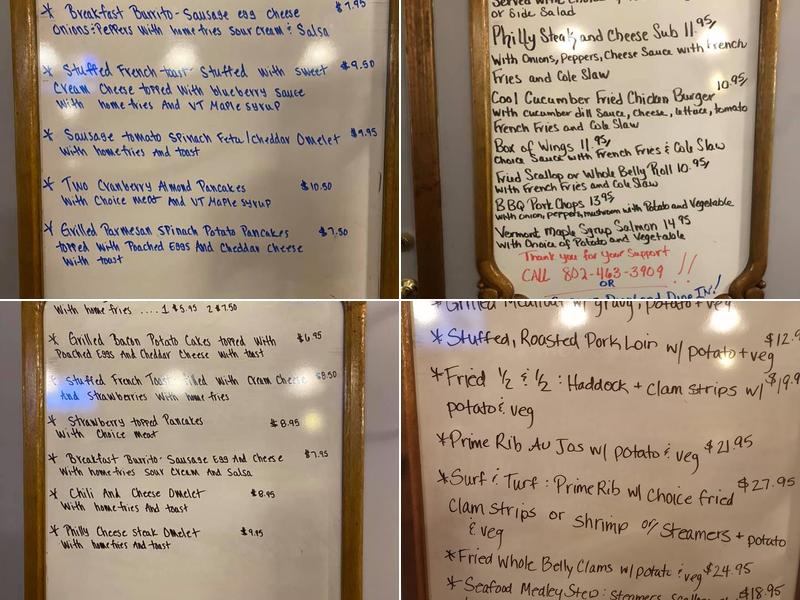 * Breakfast Burrito - Sausage egg cheese $7.95
onions & Peppers with home fries sour cream & Salsa
* Stuffed French toast - Stuffed with sweet $9.50
Cream Cheese topped with blueberry sauce
with home fries And VT Maple syrup
* Sausage tomato spinach Feta/cheddar Omelet $9.95
with homefries and toast
* Two Cranberry Almond Pancakes $10.50
with choice meat and VT Maple syrup
* Grilled Parmesan spinach Potato Pancakes $7.50
topped with Poached Eggs And Cheddar Cheese
with toast
or Side Salad
Philly Steak and Cheese Sub 11.95/
with Onions, Peppers, Cheese Sauce with French
Fries and Cole Slaw
Cool Cucumber Fried Chicken Burger 10.95/
with cucumber dill Sauce, Cheese, lettuce, tomato
French Fries and Cole Slaw
Box of Wings 11.95/
Choice Sauce with French Fries & Cole Slaw
Fried Scallop or Whole Belly Roll 10.95/
with French Fries and Cole Slaw
BBQ Pork Chops 13.95/
with onion, peppers, mushroom with Potato and Vegetable
Vermont Maple Syrup Salmon 14.95
with Choice of Potato and Vegetable
Thank you for your Support
CALL 802-463-3909 !!
OR
Dine IN!
with home fries .... 1 $5.95 2 $7.50
* Grilled Bacon Potato Cakes topped with $6.95
Poached Eggs And Cheddar Cheese with toast
Stuffed French Toast Filled with Cream Cheese $8.50
And Strawberries with home fries
* Strawberry topped Pancakes $8.95
with Choice meat
* Breakfast Burrito - Sausage Egg And Cheese $7.95
with homefries sour cream And Salsa
* Chili And Cheese Omelet $8.95
with homefries and toast
* Philly Cheese steak Omelet $9.95
with home fries And toast
w/ gravy, potato + veg
* Stuffed, Roasted Pork Loin w/ potato + veg $12.9
* Fried 1/2 & 1/2 : Haddock + clam strips w/ $19.9
potato & veg
* Prime Rib Au Jas w/ potato & veg $21.95
* Surf & Turf : Prime Rib w/ choice fried $27.95
clam strips or shrimp or/ steamers + potato
& veg
* Fried Whole Belly Clams w/ potato & veg $24.95
* Seafood Medley Step: steamers, $18.95